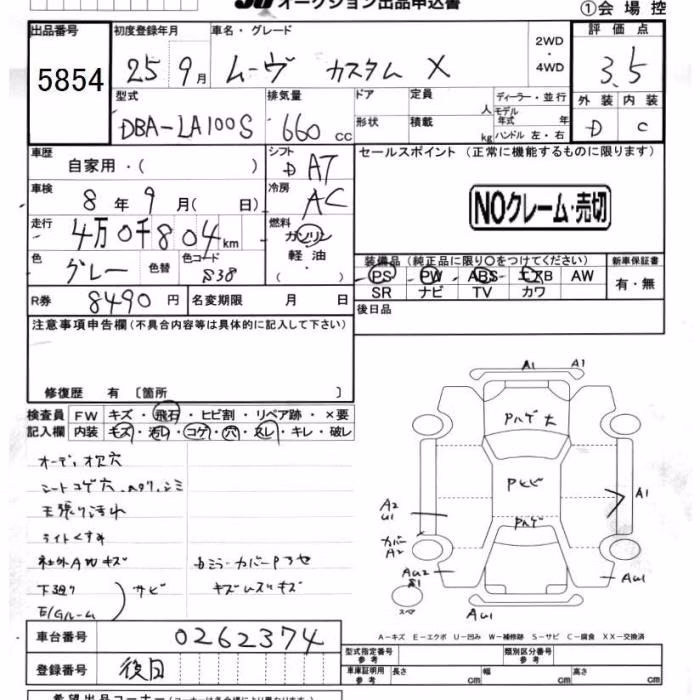 オークション出品申込書
①会場控
出品番号
5854
初度登録年月
25年9月
車名・グレード
ムーヴ カスタム X
2WD
・
4WD
評価点
3.5
型式
DBA-LA100S
排気量
660cc
ドア
形状
定員 人
積載 kg
ディーラー・並行
モデル年式 年
ハンドル 左・右
外装 内装
D C
車歴
自家用・( )
シフト
D AT
セールスポイント (正常に機能するものに限ります)
NOクレーム・売切
車検
8年9月( 日)
冷房
AC
走行
4万0千804km
燃料
ガソリン
軽油・
( )
色
グレー
色替
色コード
S38
装備品(純正品に限り○をつけてください)
PS PW ABS エアB AW
SR ナビ TV カワ
新車保証書
有・無
R券 8490円
名変期限 月 日
後日品
注意事項申告欄(不具合内容等は具体的に記入して下さい)
修復歴 有〔箇所 〕
検査員記入欄
FW キズ・飛石・ヒビ割・リペア跡・×要
内装 キズ・汚レ・コゲ・穴・スレ・キレ・破レ
オーディオ穴
シートコゲ穴、ヘタリ、シミ
天張り汚れ
ライトくすみ
社外AWキズ
下廻り
E/Gルーム
サビ
A1 A1
Pハゲ大
Pヒビ
Pハゲ
A2
U1
カバー
A2
AU2
A1
AU1
AU1
スペア
A-キズ E-エクボ U-凹み W-補修跡 S-サビ C-腐食 XX-交換済
車台番号
0262374
登録番号
後日
型式指定番号
参考
類別区分番号
参考
車庫証明用
参考
長さ cm
幅 cm
高さ cm
希望出品コーナー